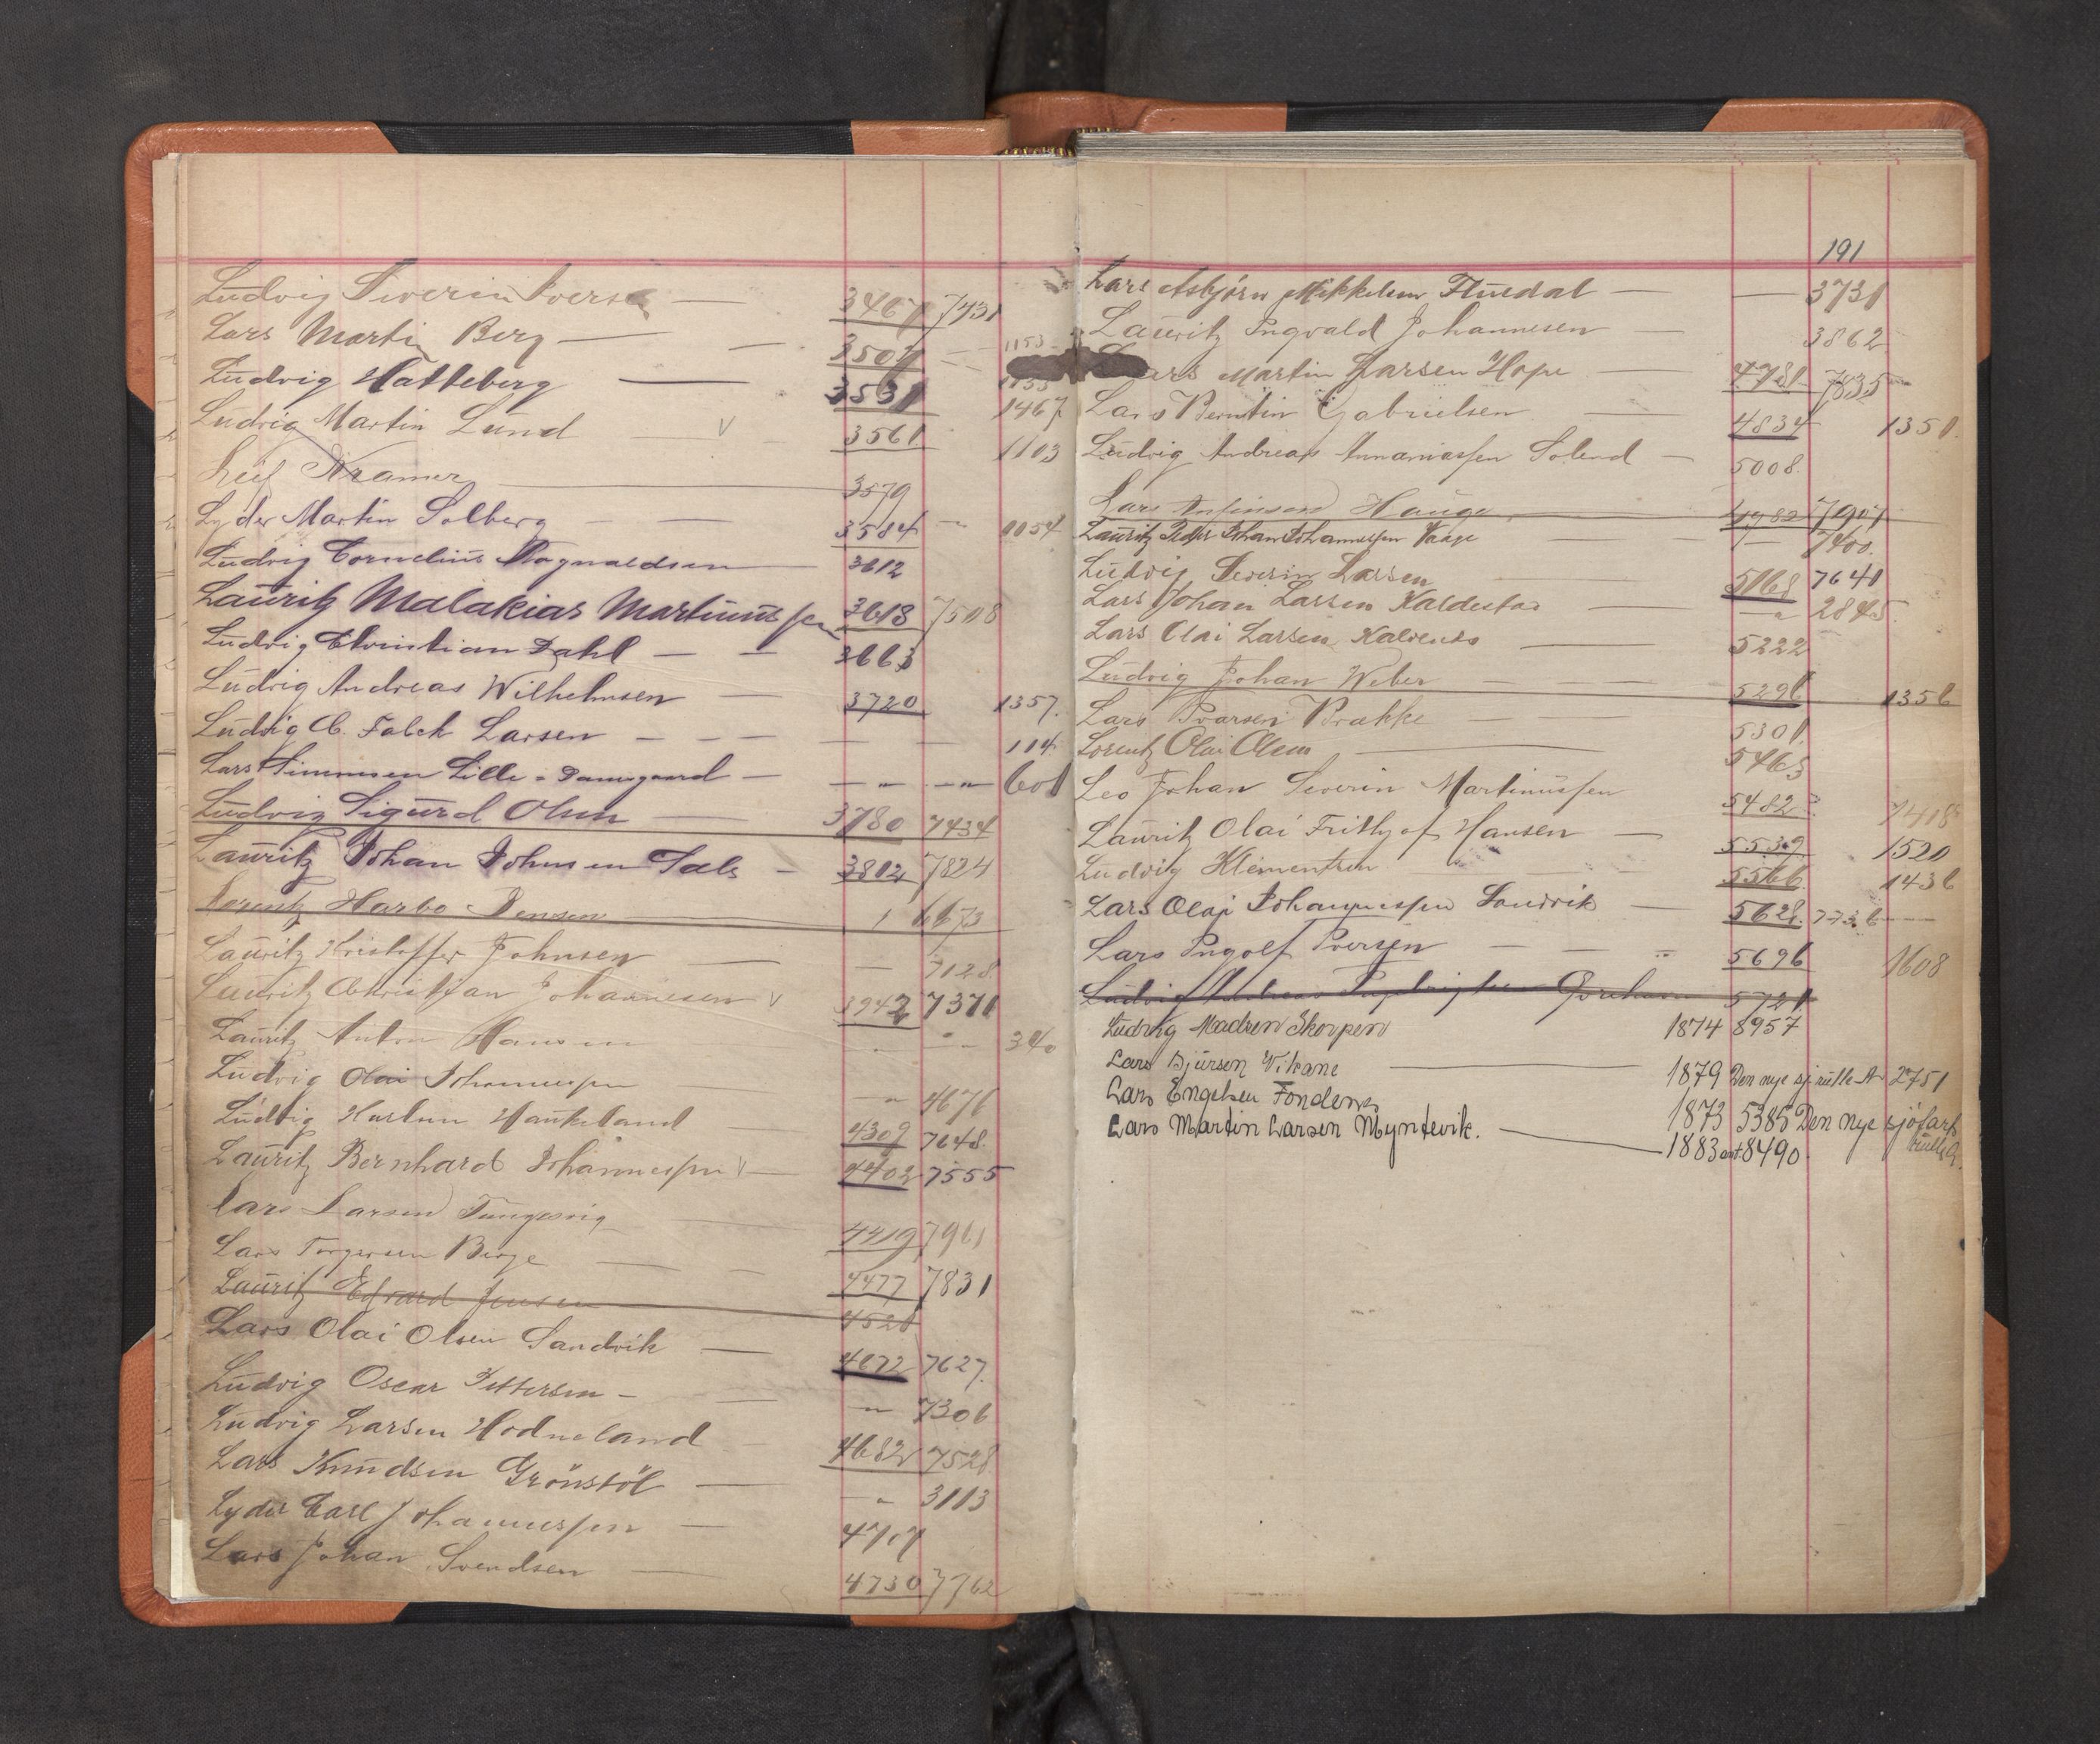 Ludvig Severin Iversen — 3467 7431
Lars Martin Berg — — 3507 1153
Ludvig Hatteberg — 3531
Ludvig Martin Lund — V 3561 1467
Leif Kramer — 3579 1103
Lyder Martin Solberg — — 3584 — 1054
Ludvig Cornelius Rognaldsen — 3612
Lauritz Malakias Martinussen 3618 7508
Ludvig Christian Dahl — — 3663
Ludvig Andreas Wilhelmsen — 3720 1357.
Ludvig C. Falck Larsen — — — — — 114
Lars Simonsen Lille-Damsgaard — — " — — " — 601
Ludvig Sigurd Olsen — 3780 7434
Lauritz Johan Johnsen Sæle — 3802 7824
Lorentz Harbo Jensen — 6673
Lauritz Kristoffer Johnsen — — 7028
Lauritz Christian Johannesen V 3942 7371
Lauritz Anton Hansen — — 340
Ludvig Olai Johannessen — " — 4676
Ludvig Haukeland 4309 7648
Lauritz Bernhard Johannessen V — 4402 7555
Lars Larsen Tungesvig — 4419 7961
Lars Torgersen Berge — — 4477 7831
Lauritz Edvard Jensen 4521
Lars Olai Olsen Sandvik — 4672 7627.
Ludvig Oscar Pettersen — — — " — 7306
Ludvig Larsen Hodneland 4682 7528
Lars Knudsen Grönstöl — — " 3113
Lyder Carl Johannessen — 4717
Lars Johan Svendsen — 4730 7762
191
Lars Asbjörn Mikkelsen Flusdal — — 3731
Lauritz Ingvald Johannesen — 3862
Lars Martin Larsen Hope — 4781 7835
Lars Berntin Gabrielsen — 4834 1351.
Ludvig Andreas Annaniassen Solend — 5008.
Lars Hauge 4982 7907
Lauritz Peder Johan Johannessen Vaage — — 7400.
Ludvig Severin Larsen 5168 7641
Lars Johan Larsen Kaldestad — " 2845
Lars Olai Larsen — 5222
Ludvig Johan Weber — — 5296 1356
Lars Brakke — — 5301.
Lorentz Olai Olsen — 5463
Leo Johan Severin Martinussen 5482 7418
Lauritz Olai Frithjof Hansen — 5539 1520
Ludvig Klementsen 5566 1436
Lars Olai Johannessen Sandvik — 5628 7736 —
Lars Ingolf Iversen — — 5696 1608
Ludvig Andreas 5721
Ludvig Madsen Skorpen 1874 8957
Lars Djursen Vikane — 1879 Den nye sj rulle A 2751
Lars Engelsen Fondenes 1873 5385 Den nye sjöfarts
Lars Martin Larsen Myntevik. — 1883 ant 8490. rulle A.